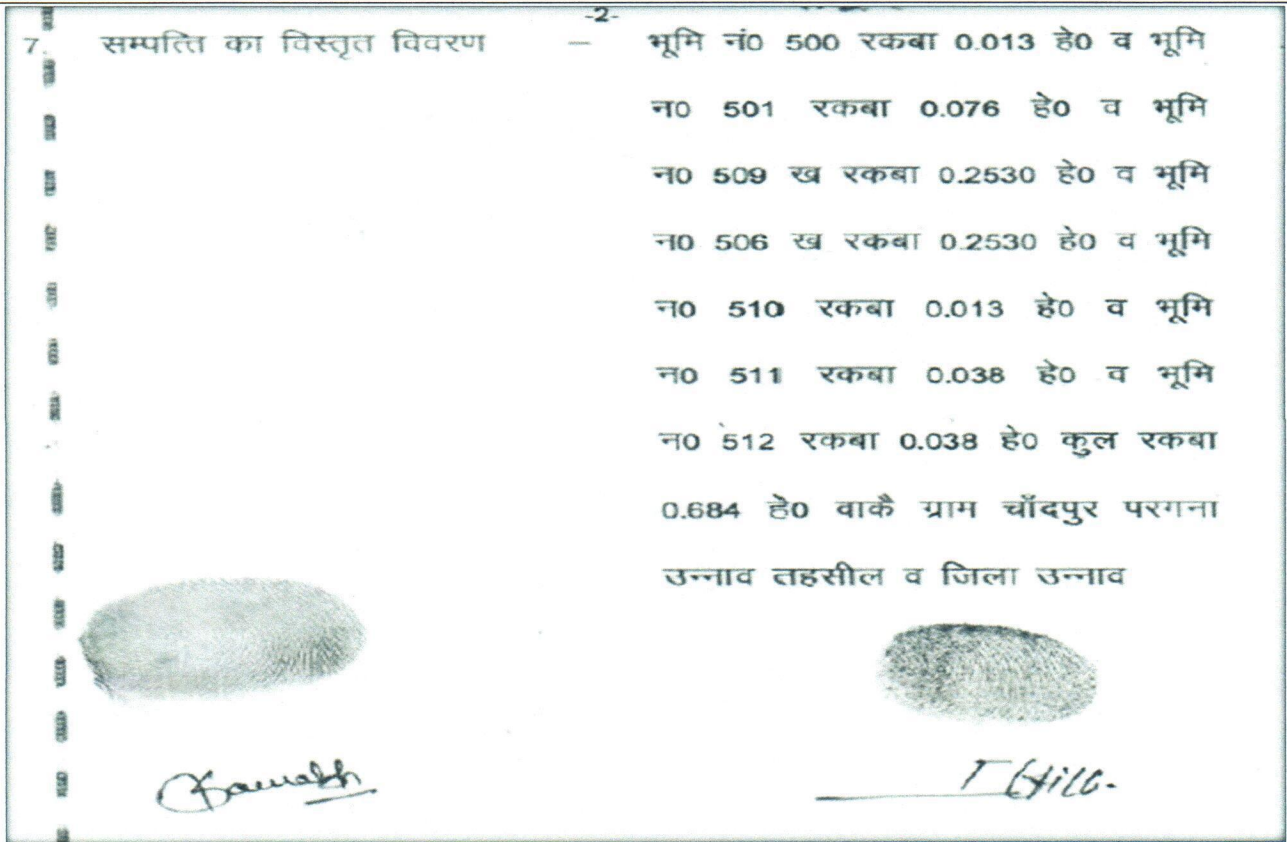 -2-
7. सम्पत्ति का विस्तृत विवरण – भूमि नं0 500 रकबा 0.013 हे0 व भूमि
न0 501 रकबा 0.076 हे0 व भूमि
न0 509 ख रकबा 0.2530 हे0 व भूमि
न0 506 ख रकबा 0.2530 हे0 व भूमि
न0 510 रकबा 0.013 हे0 व भूमि
न0 511 रकबा 0.038 हे0 व भूमि
न0 512 रकबा 0.038 हे0 कुल रकबा
0.684 हे0 वाकै ग्राम चाँदपुर परगना
उन्नाव तहसील व जिला उन्नाव